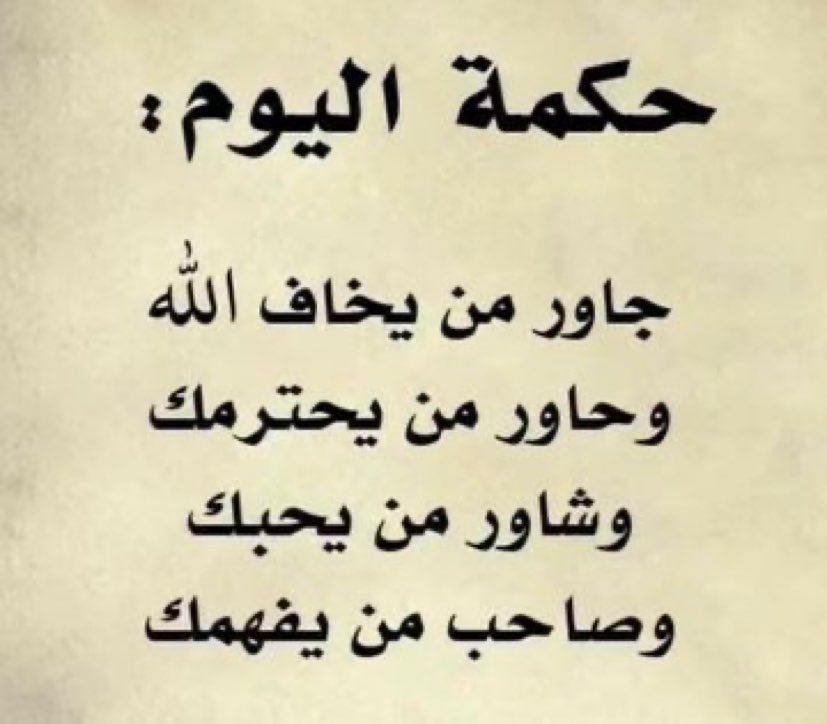 حكمة اليوم :
جاور من يخاف الله
وحاور من يحترمك
وشاور من يحبك
وصاحب من يفهمك